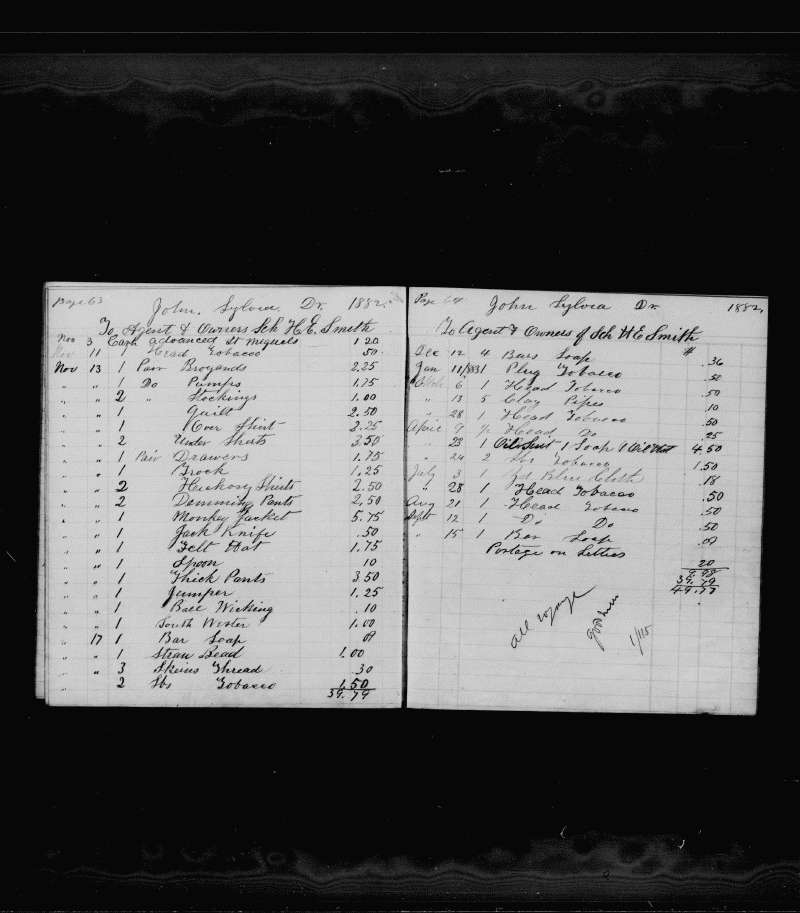 Page 63
John. Sylvia. Dr. 1882.
To Agent & Owners Sch H.E. Smith
Nov 3 Cash advanced St Miguels 1 20
Nov 11 1 Head Tobacco 50
Nov 13 1 Pair Brogands 2.25
" " 1 Do Pumps 1.75
" " 2 " Stockings 1.00
" " 1 Quilt 2.50
" " 1 Over Shirt 2.25
" " 2 Under Shirts 3.50
" " 1 Pair Drawers 1.75
" " 1 Frock 1.25
" " 2 Hickory Shirts 2.50
" " 2 Demming Pants 2.50
" " 1 Monkey Jacket 5.75
" " 1 Jack Knife .50
" " 1 Felt Hat 1.75
" " 1 Spoon 10
" " 1 Thick Pants 3.50
" " 1 Jumper 1.25
" " 1 Ball Wicking .10
" " 1 South Wester 1.00
" 17 1 Bar Soap 09
" " 1 Straw Bead 1.00
" " 3 Skeins Thread .30
" " 2 lbs Tobacco 1.50
39.79
Page 64
John Sylvia Dr 1882.
To Agent & Owners of Sch H E Smith
Dec 12 4 Bars Soap .36
Jan 11/1883 1 Plug Tobacco .50
6 1 Head Tobacco .50
" 13 5 Clay Pipes .10
" 28 1 Head Tobacco .50
April 9 ½ Head Do .25
" 23 1 Oil Suit 1 Soap 1 Oil Hat 4.50
" 24 2 lbs Tobacco 1.50
July 3 1 Yd Blue Cloth .18
" 28 1 Head Tobacco .50
Aug 21 1 Head Tobacco .50
Sept 12 1 Do Do .50
" 15 1 Bar Soap .09
Postage on Letters 20
9.98
39.79
49.77
all voyage
1/115